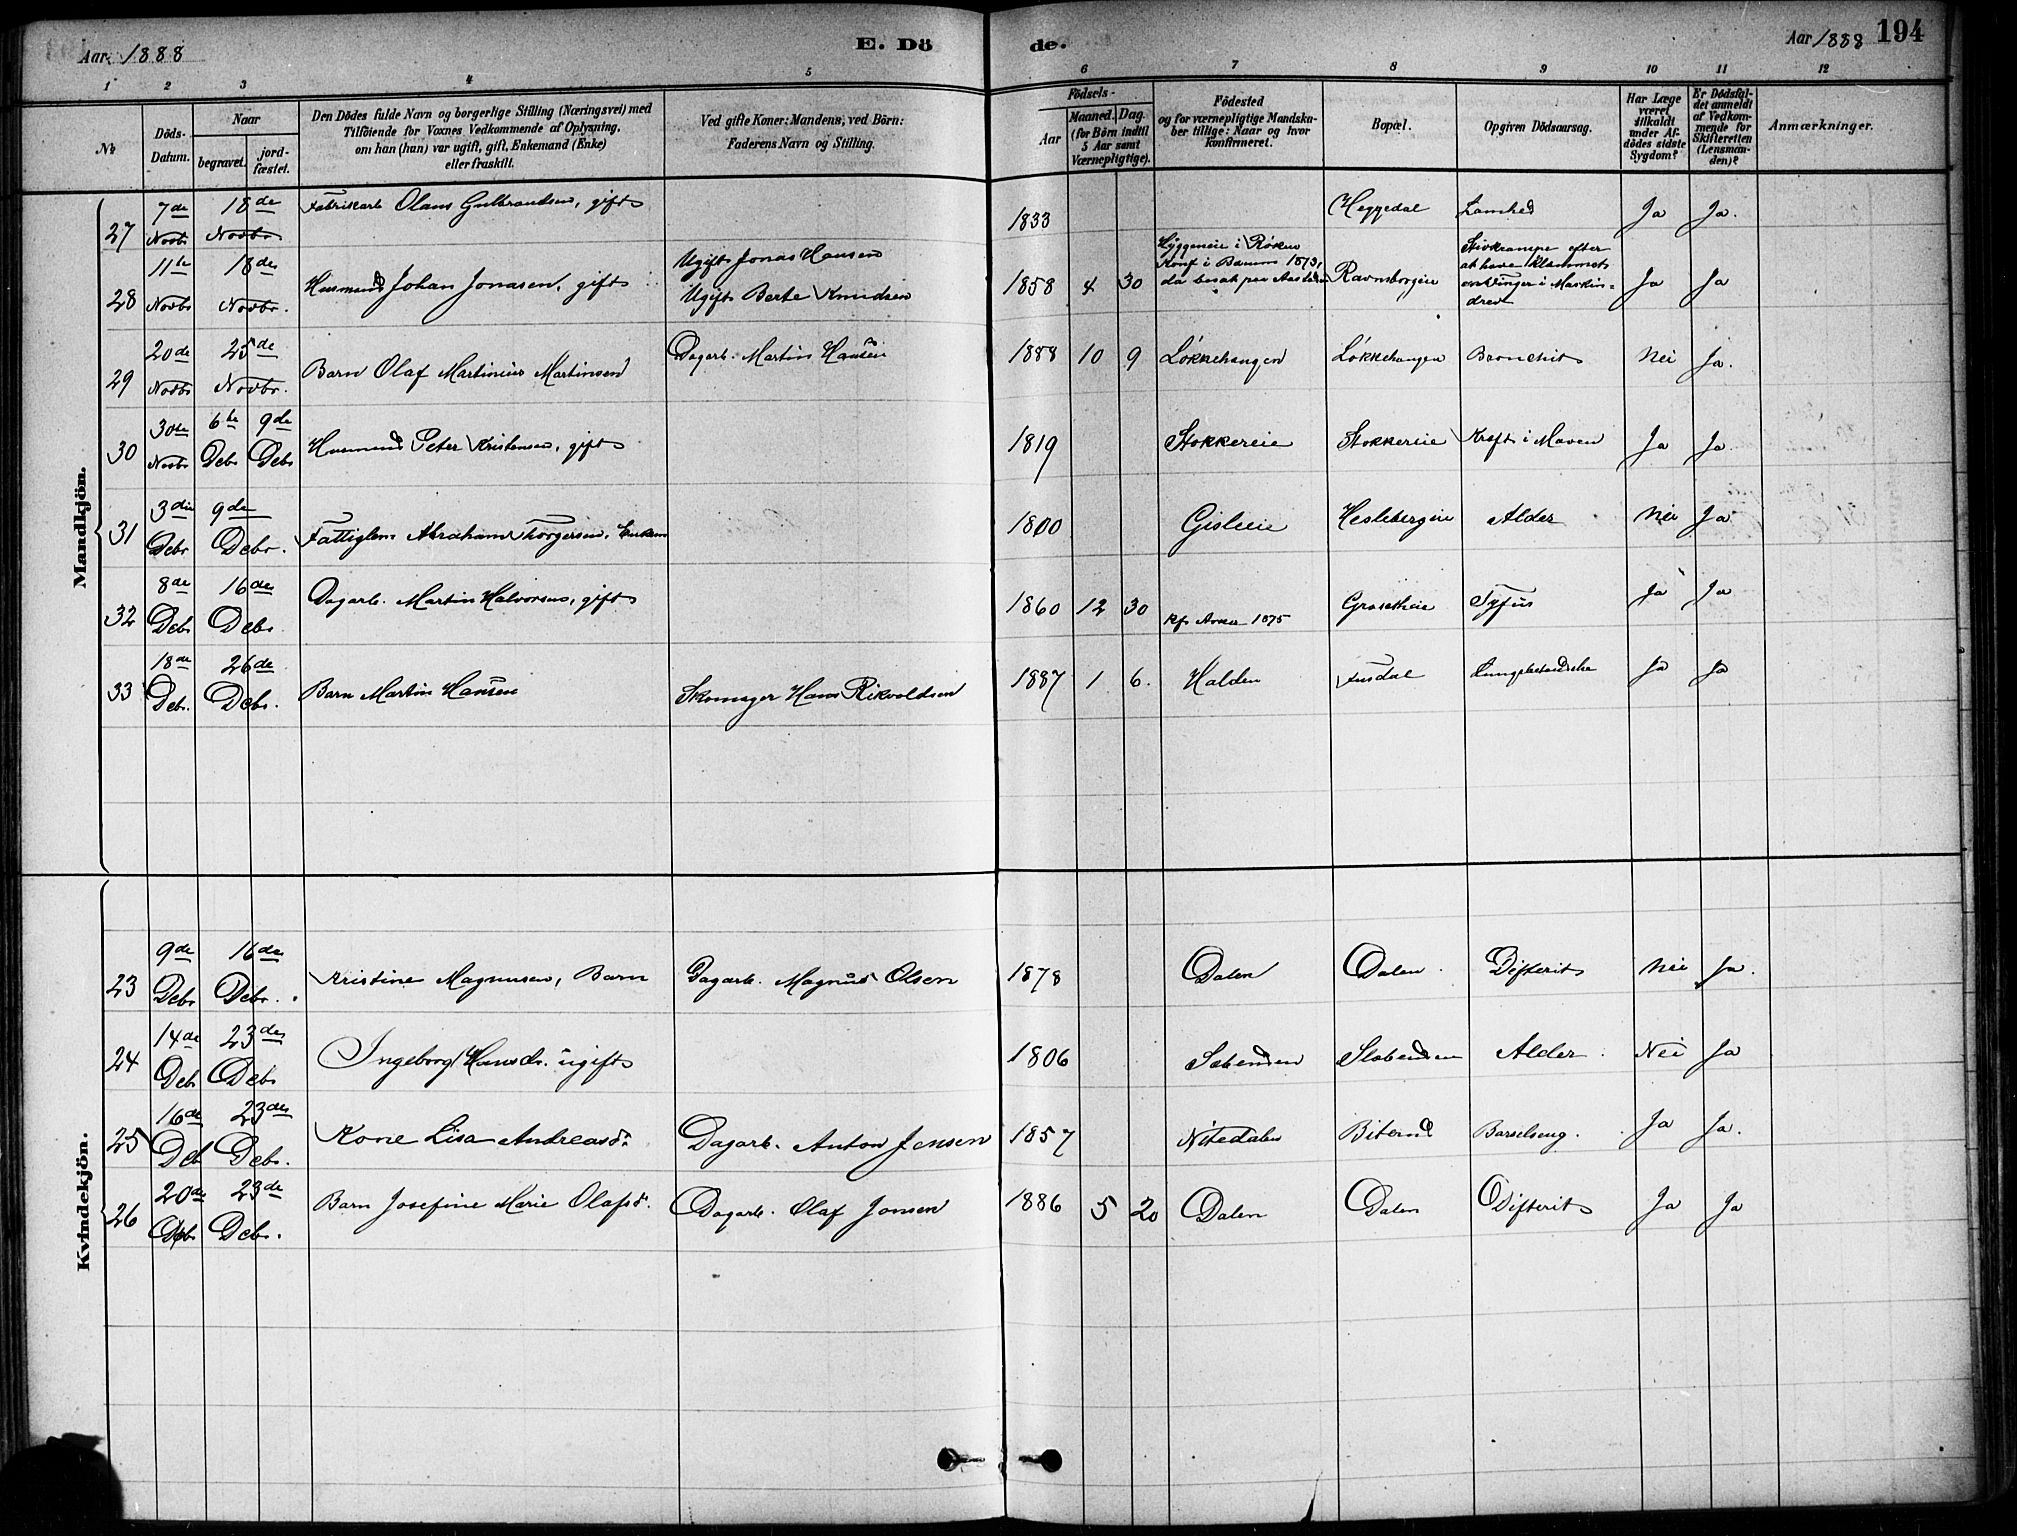 Aar 1888
E. Dö
de.
Aar 1888
194
1 2 3 4 5 6 7 8 9 10 11 12
№
Döds-
Datum.
Naar
begravet.
jord-
fæstet.
Den Dödes fulde Navn og borgerlige Stilling (Næringsvei) med
Tilföiende for Voxnes Vedkommende af Oplysning,
om han (hun) var ugift, gift, Enkemand (Enke)
eller fraskilt.
Ved gifte Koner: Mandens, ved Börn:
Faderens Navn og Stilling.
Födsels-
Aar
Maaned. Dag.
(for Börn indtil
5 Aar samt
Værnepligtige).
Födested
og for værnepligtige Mandska-
ber tillige: Naar og hvor
konfirmeret.
Bopæl.
Opgiven Dödsaarsag.
Har Læge
været
tilkaldt
under Af-
dödes sidste
Sygdom?
Er Dödsfal-
det anmeldt
af Vedkom-
mende for
Skifteretten
(Lensman-
den)?
Anmærkninger.
Mandkjön.
27 7de Novbr 18de Novbr Fabrikarb Olaus Gulbrandsen, gift 1833 Heggedal Lamhed Ja Ja.
28 11te Novbr 18de Novbr. Husmand Johan Jonasen, gift
Ugift Jonas Hansen
Ugift Berte Knudsen
1858 4 30
Hyggeneie i Røken
Konf i Bærum 1873,
da bosat paa
Ravnsborgeie
Stivkrampe efter
at have klemmet
en Finger i Maskin-
drev
Ja Ja
29 20de Novbr 25de Novbr. Barn Olaf Martinius Martinsen Dagarb. Martin Hansen 1888 10 9 Løkkehaugen Løkkehaugen Bronchit Nei Ja.
30 30te Novbr 6te Debr 9de Debr Husmand Peter Kristensen, gift 1819 Stokkereie Stokkereie Kræft i Maven Ja Ja
31 3die Debr 9de Debr. Fattiglem Abraham Torgersen, Enkem 1800 Gisleeie Heslebergeie Alder Nei Ja
32 8de Debr 16de Debr Dagarb. Martin Halvorsen, gift 1860 12 30 Kf. Asker 1875 Grosetheie Tyfus Ja Ja
33 18de Debr. 26de Debr. Barn Martin Hansen Skomager Hans Rikvoldsen 1887 1 6. Halden Fusdal Lungebetændelse Ja Ja
Kvindekjön.
23 9de Debr 16de Debr. Kristine Magnusen, Barn Dagarb. Magnus Olsen 1878 Dalen Dalen Difterit Nei Ja.
24 14de Debr 23de Debr Ingeborg Hansdr. ugift 1806 Slabenden Alder Nei Ja
25 16de Deb 23de Debr. Kone Lisa Andreasdr. Dagarb. Anton Jensen 1857 Nitedalen Biterud Barselseng. Ja Ja.
26 20de Debr 23de Debr. Barn Josefine Marie Olafsdr. Dagarb. Olaf Jonsen 1886 5 20 Dalen Dalen Difterit Ja Ja